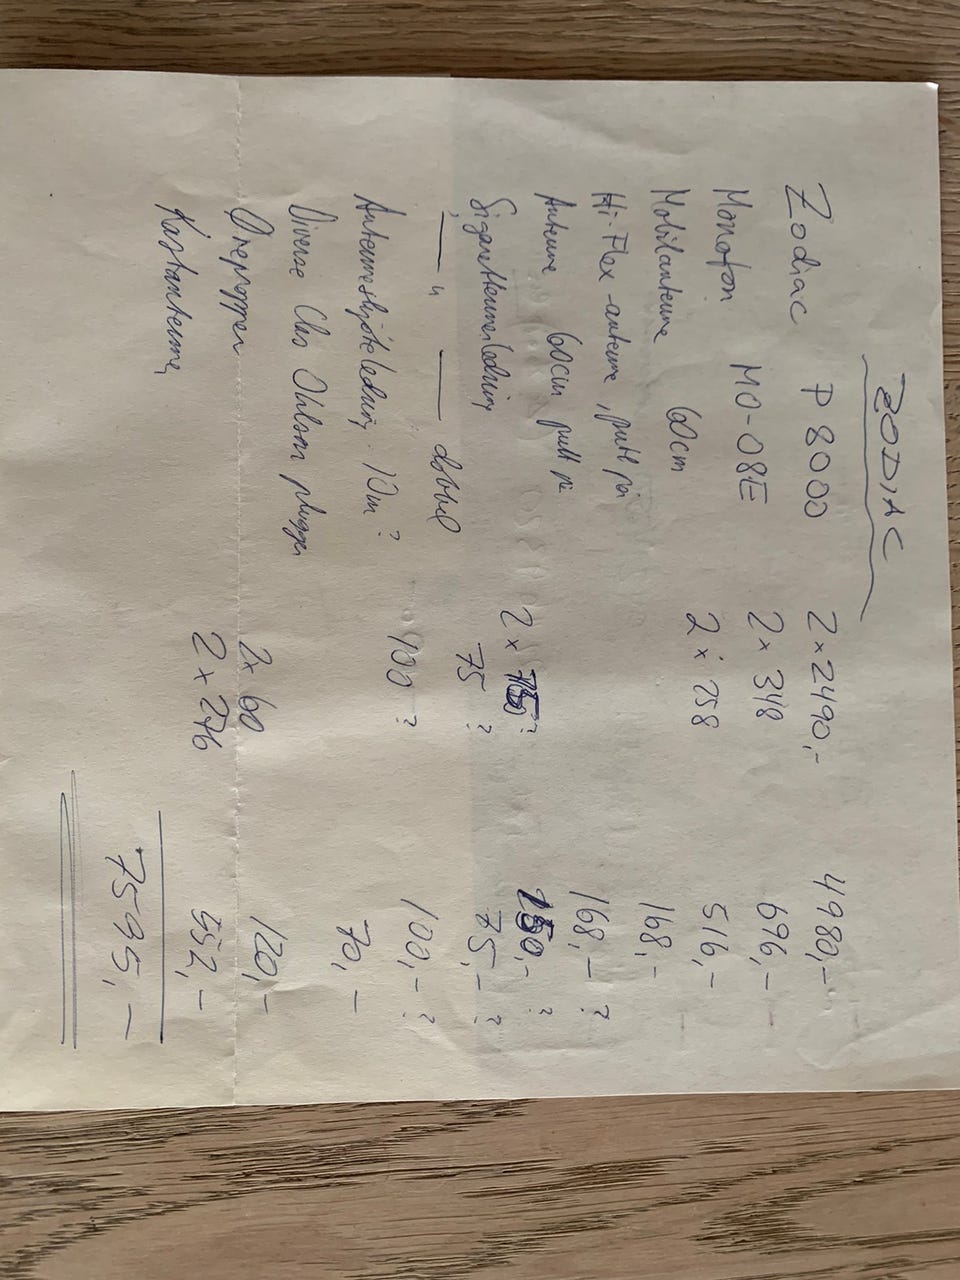 ZODIAC
Zodiac P 8000 2 x 2490,- 4980,-
Monofon MO-08E 2 x 348 696,-
Mobilantenne 60cm 2 x 258 516,-
Hi-Flex-antenne, putt på 168,-
Antenne 60cm putt på 168,- ?
Sigarettennerledning 2 x ? 150,- ?
— " — dobbel 75 ? 75,- ?
Antenneskjøteledning. 10m ? 100 ? 100,- ?
Diverse Clas Ohlson plugger 70,-
Ørepropper 2 x 60 120,-
Kastantenne 2 x 276 552,-
7595,-